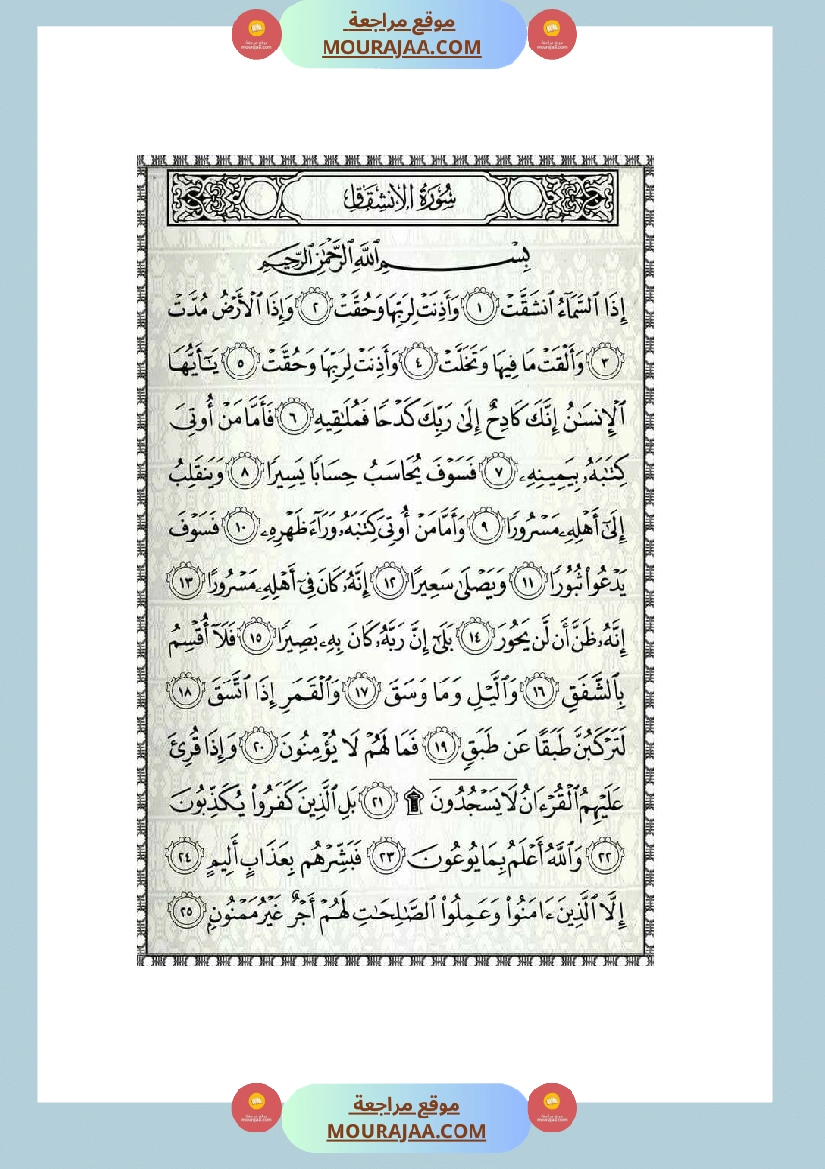 موقع مراجعة
MOURAJAA.COM
سُورَةُ الِانشِقَاقِ
بِسْمِ اللَّهِ الرَّحْمَٰنِ الرَّحِيمِ
إِذَا ٱلسَّمَآءُ ٱنشَقَّتْ ١ وَأَذِنَتْ لِرَبِّهَا وَحُقَّتْ ٢ وَإِذَا ٱلْأَرْضُ مُدَّتْ
٣ وَأَلْقَتْ مَا فِيهَا وَتَخَلَّتْ ٤ وَأَذِنَتْ لِرَبِّهَا وَحُقَّتْ ٥ يَٰٓأَيُّهَا
ٱلْإِنسَٰنُ إِنَّكَ كَادِحٌ إِلَىٰ رَبِّكَ كَدْحًا فَمُلَٰقِيهِ ٦ فَأَمَّا مَنْ أُوتِيَ
كِتَٰبَهُۥ بِيَمِينِهِۦ ٧ فَسَوْفَ يُحَاسَبُ حِسَابًا يَسِيرًا ٨ وَيَنقَلِبُ
إِلَىٰٓ أَهْلِهِۦ مَسْرُورًا ٩ وَأَمَّا مَنْ أُوتِيَ كِتَٰبَهُۥ وَرَآءَ ظَهْرِهِۦ ١٠ فَسَوْفَ
يَدْعُوا۟ ثُبُورًا ١١ وَيَصْلَىٰ سَعِيرًا ١٢ إِنَّهُۥ كَانَ فِىٓ أَهْلِهِۦ مَسْرُورًا ١٣
إِنَّهُۥ ظَنَّ أَن لَّن يَحُورَ ١٤ بَلَىٰٓ إِنَّ رَبَّهُۥ كَانَ بِهِۦ بَصِيرًا ١٥ فَلَآ أُقْسِمُ
بِٱلشَّفَقِ ١٦ وَٱلَّيْلِ وَمَا وَسَقَ ١٧ وَٱلْقَمَرِ إِذَا ٱتَّسَقَ ١٨
لَتَرْكَبُنَّ طَبَقًا عَن طَبَقٍ ١٩ فَمَا لَهُمْ لَا يُؤْمِنُونَ ٢٠ وَإِذَا قُرِئَ
عَلَيْهِمُ ٱلْقُرْءَانُ لَا يَسْجُدُونَ ۩ ٢١ بَلِ ٱلَّذِينَ كَفَرُوا۟ يُكَذِّبُونَ
٢٢ وَٱللَّهُ أَعْلَمُ بِمَا يُوعُونَ ٢٣ فَبَشِّرْهُم بِعَذَابٍ أَلِيمٍ ٢٤
إِلَّا ٱلَّذِينَ ءَامَنُوا۟ وَعَمِلُوا۟ ٱلصَّٰلِحَٰتِ لَهُمْ أَجْرٌ غَيْرُ مَمْنُونٍۭ ٢٥
موقع مراجعة
MOURAJAA.COM